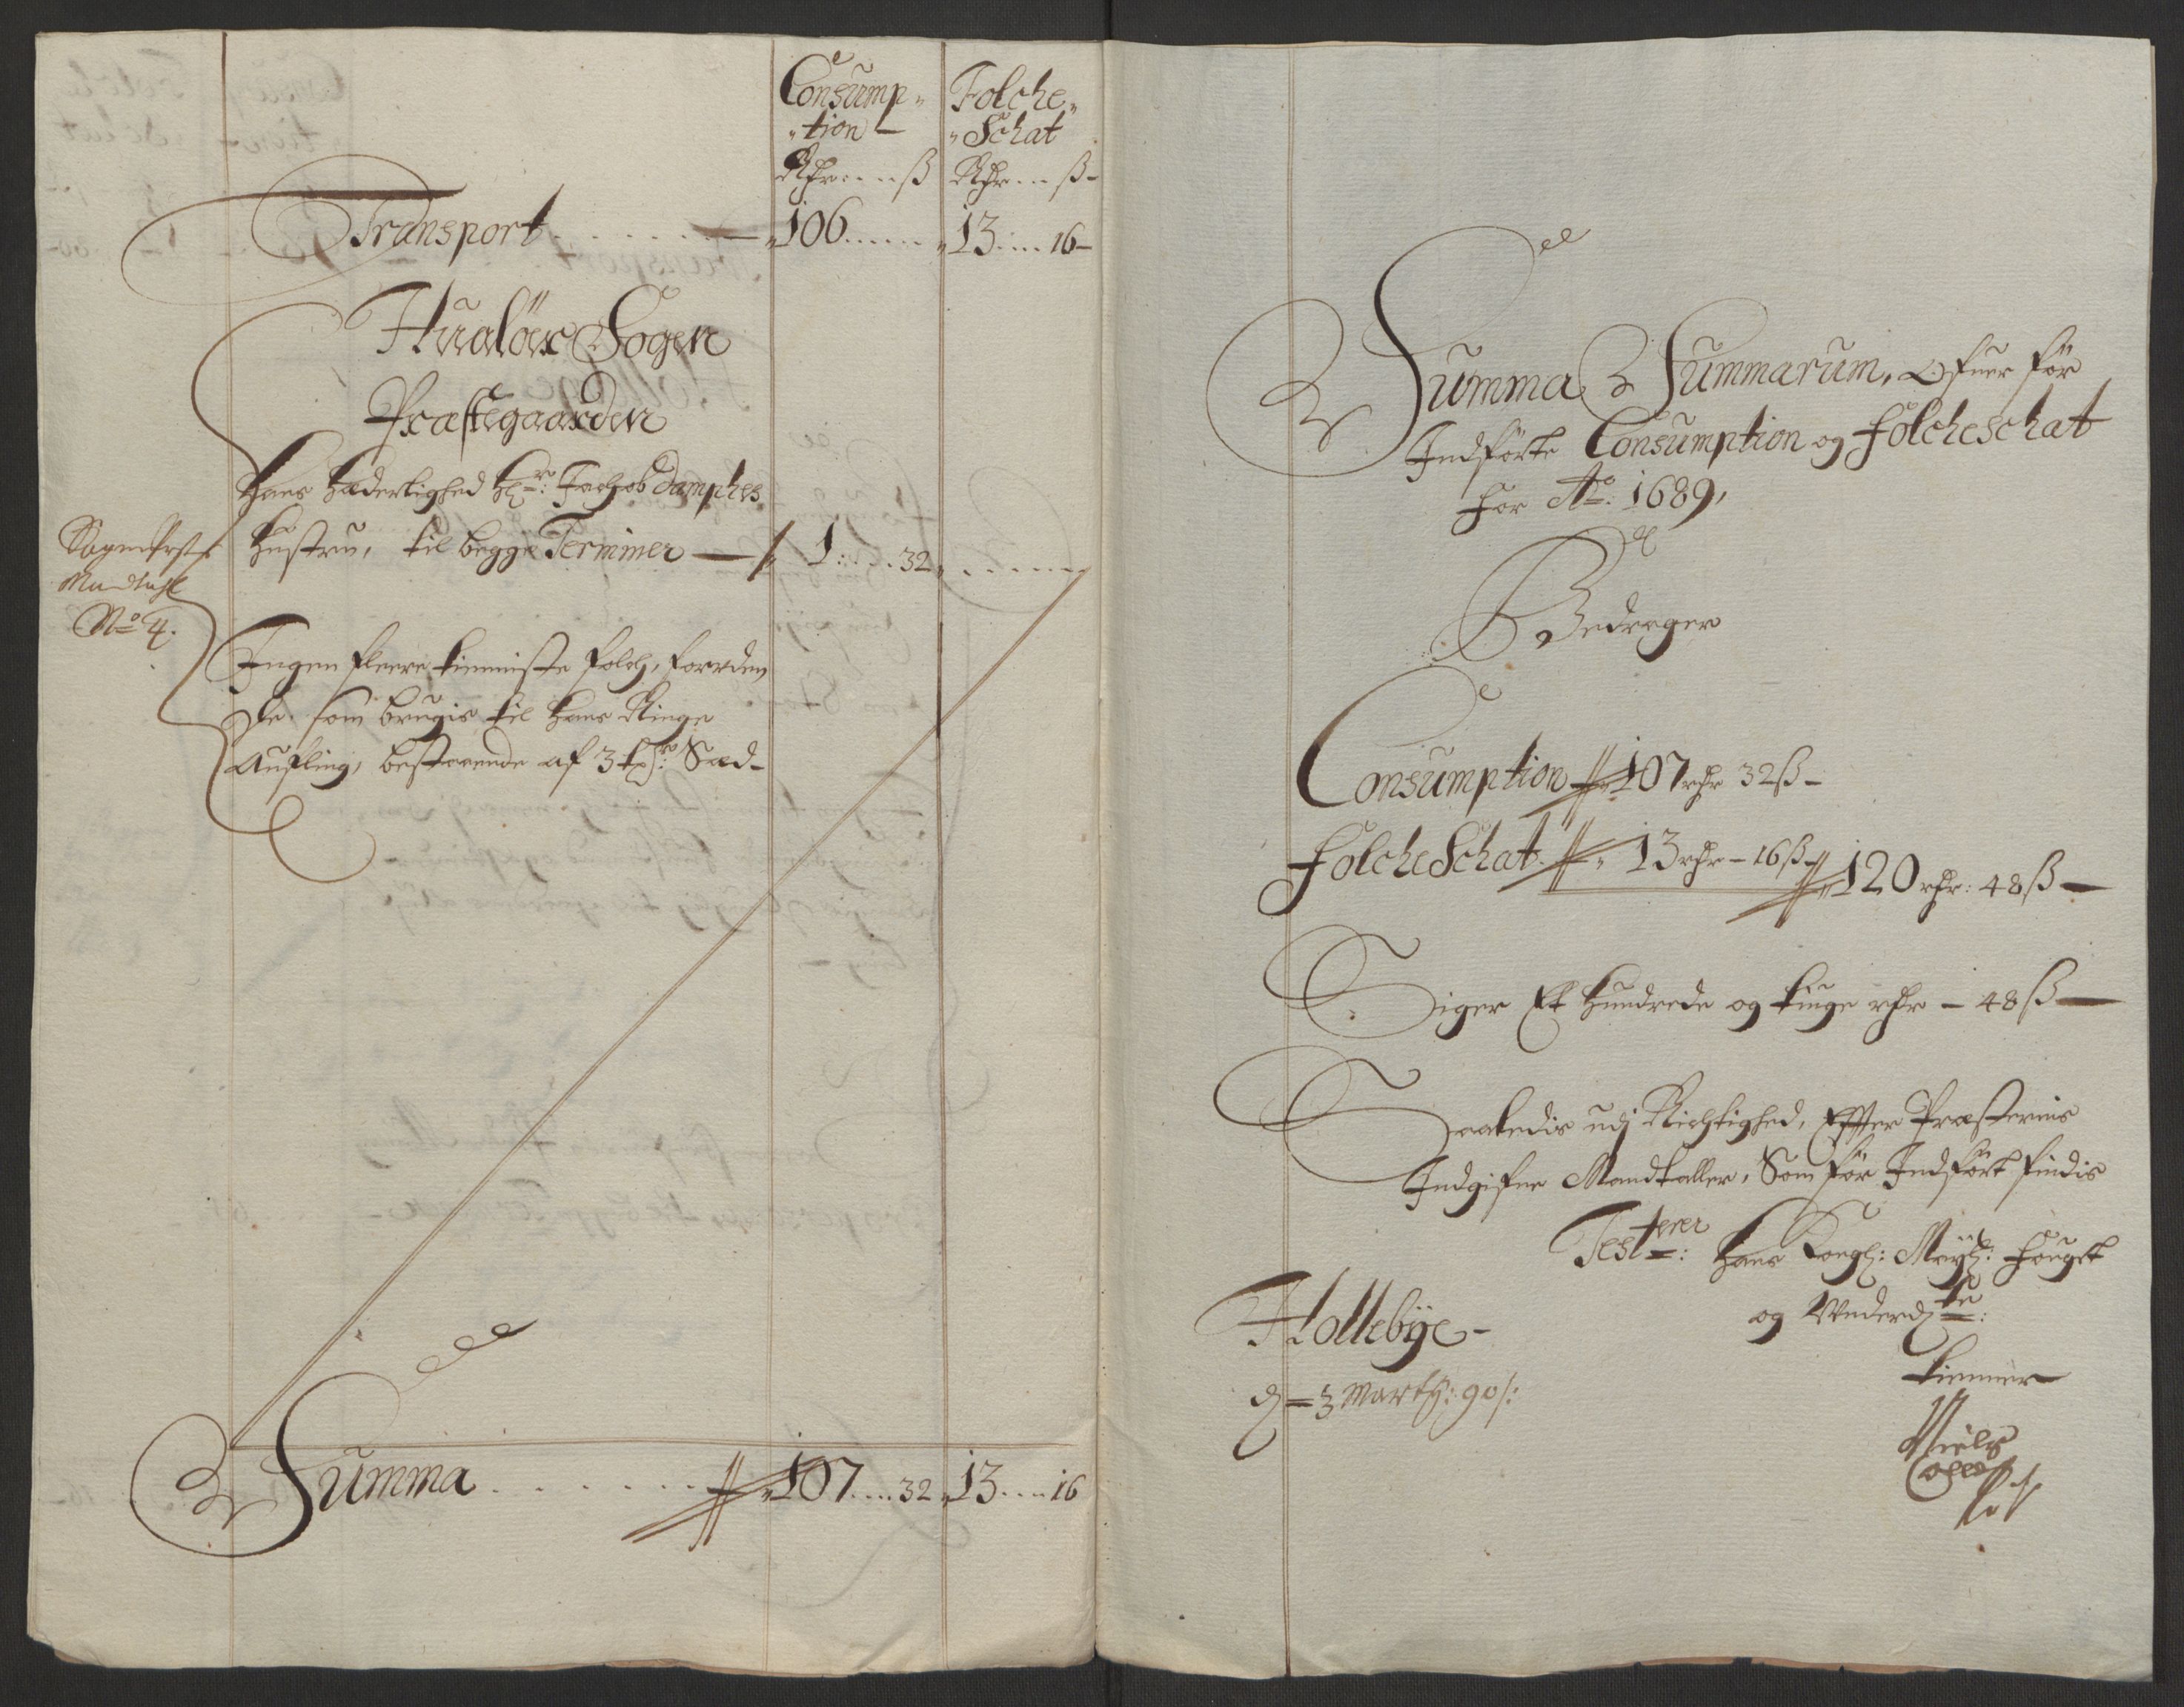 Consump-
-tion
Rdr . . . ß
Folche-
-Schat
Rdr . . . ß
Transport . . . . . . . 106 . . . . . 13 . . . 16
Hualöer Sogen
Præstegaarden
Hans Hæderlighed Hr: Jachob Damphes
Hustru, til begge Terminer — 1 . . . 32 . . . . . .
Mandtahl
No 4.
Ingen fleere tienniste folch, forrden
de som brugis til hans Ringe
Aufling, bestaaende af 3 tdr: Sæd-
Summa . . . . . . . 107 . . . 32 13 . . . 16
Summa Summarum, Ofuer för
Indförte Consumption og Folcheschat
for Ao: 1689,
Bedrager
Consumption 107 rdr 32 ß
Folche Schat 13 rdr - 16 ß 120 rdr: 48 ß
Siger Et Hundrede og tiuge rdr - 48 ß
Saaledis udj Richtighed, Efter Præsternis
Indgifne Mandtaller, Som för Indfört findis
Testerer Hans Kongl: Mayts: fougt
og Underdte:
tienner
Hollebÿe-
d= 3 Martij: 90/:
Niels